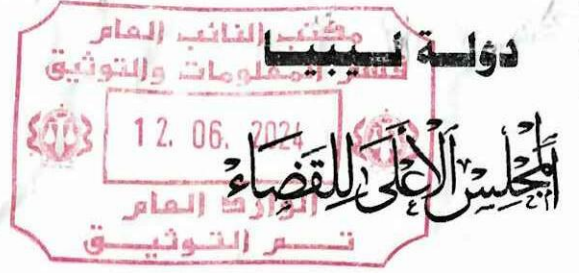 دولة ليبيا
المجلس الأعلى للقضاء
مكتب النائب العام
قسم المعلومات والتوثيق
12. 06. 2024
الوارد العام
تم التوثيق